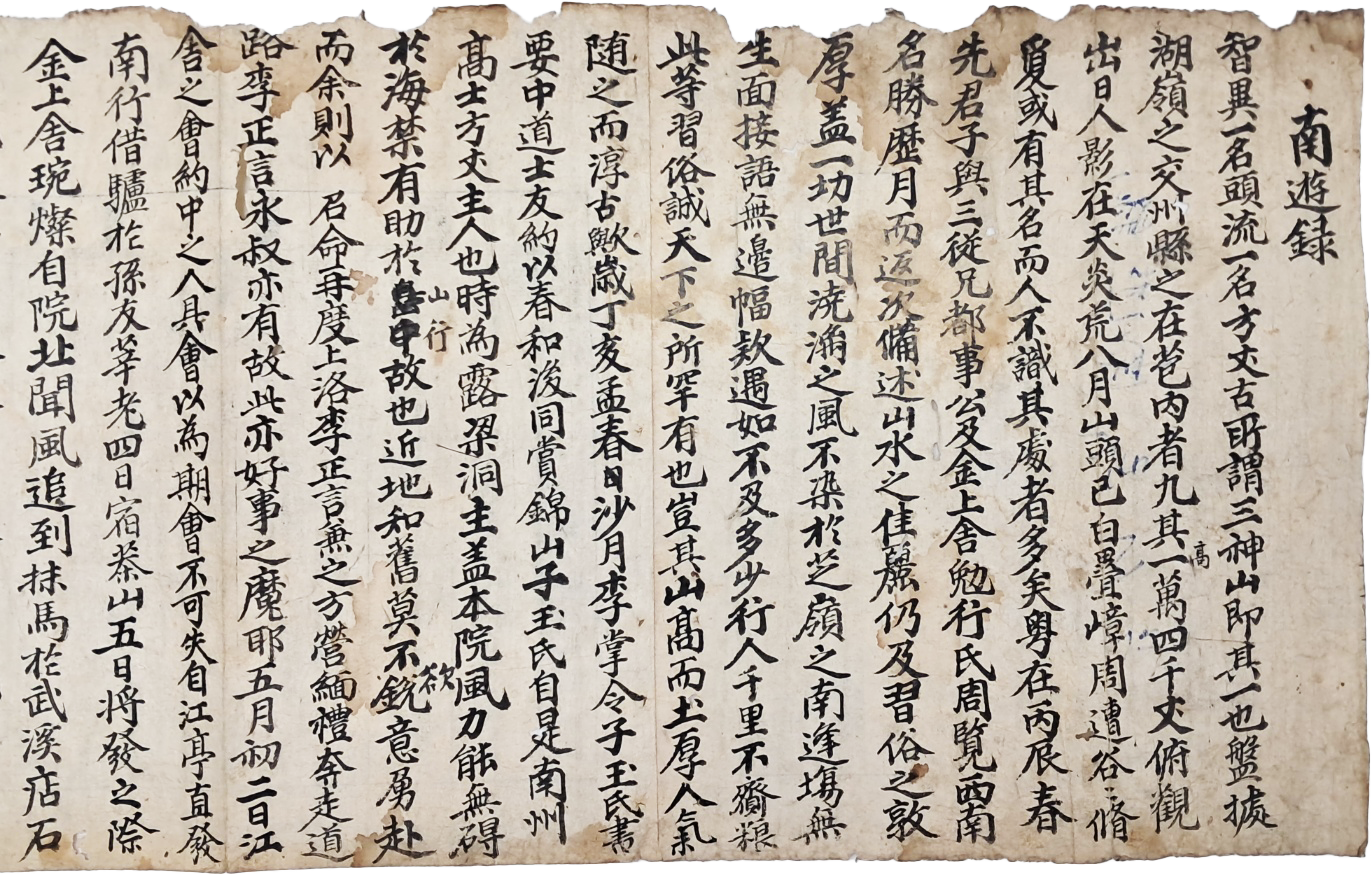 南遊録
智異一名頭流一名方丈古所謂三神山即其一也盤據
湖嶺之交州縣之在苞内者九其高一萬四千丈俯觀
出日人影在天炎荒八月山頭已白疊嶂周遭谷谷脩
夐或有其名而人不識其處者多矣粤在丙辰春
先君子與三從兄都事公及金上舍勉行氏周覧西南
名勝歴月而返次備述山水之佳麗仍及習俗之敦
厚盖一切世間澆漓之風不染於芝嶺之南逢塲無
生面接語無邊幅欵遇如不及多少行人千里不齎粮
此等習俗誠天下之所罕有也豈其山髙而土厚人氣
随之而淳古歟歳丁亥孟春日沙月李掌令子玉氏書
要中道士友約以春和後同賞錦山子玉氏自是南州
髙士方丈主人也時為露梁洞主盖本院風力能無碍
於海禁有助於山行故也近地知舊莫不欽欽銳意勇赴
而余則以 召命再度上洛李正言無之方營緬禮奔走道
路李正言永叔亦有故此亦好事之魔耶五月初二日江
舎之會約中之人具會以為期會不可失自江亭直發
南行借驢於孫友莘老四日宿蔡山五日将發之際
金上舎琬燦自院北聞風追到抹馬於武溪店石